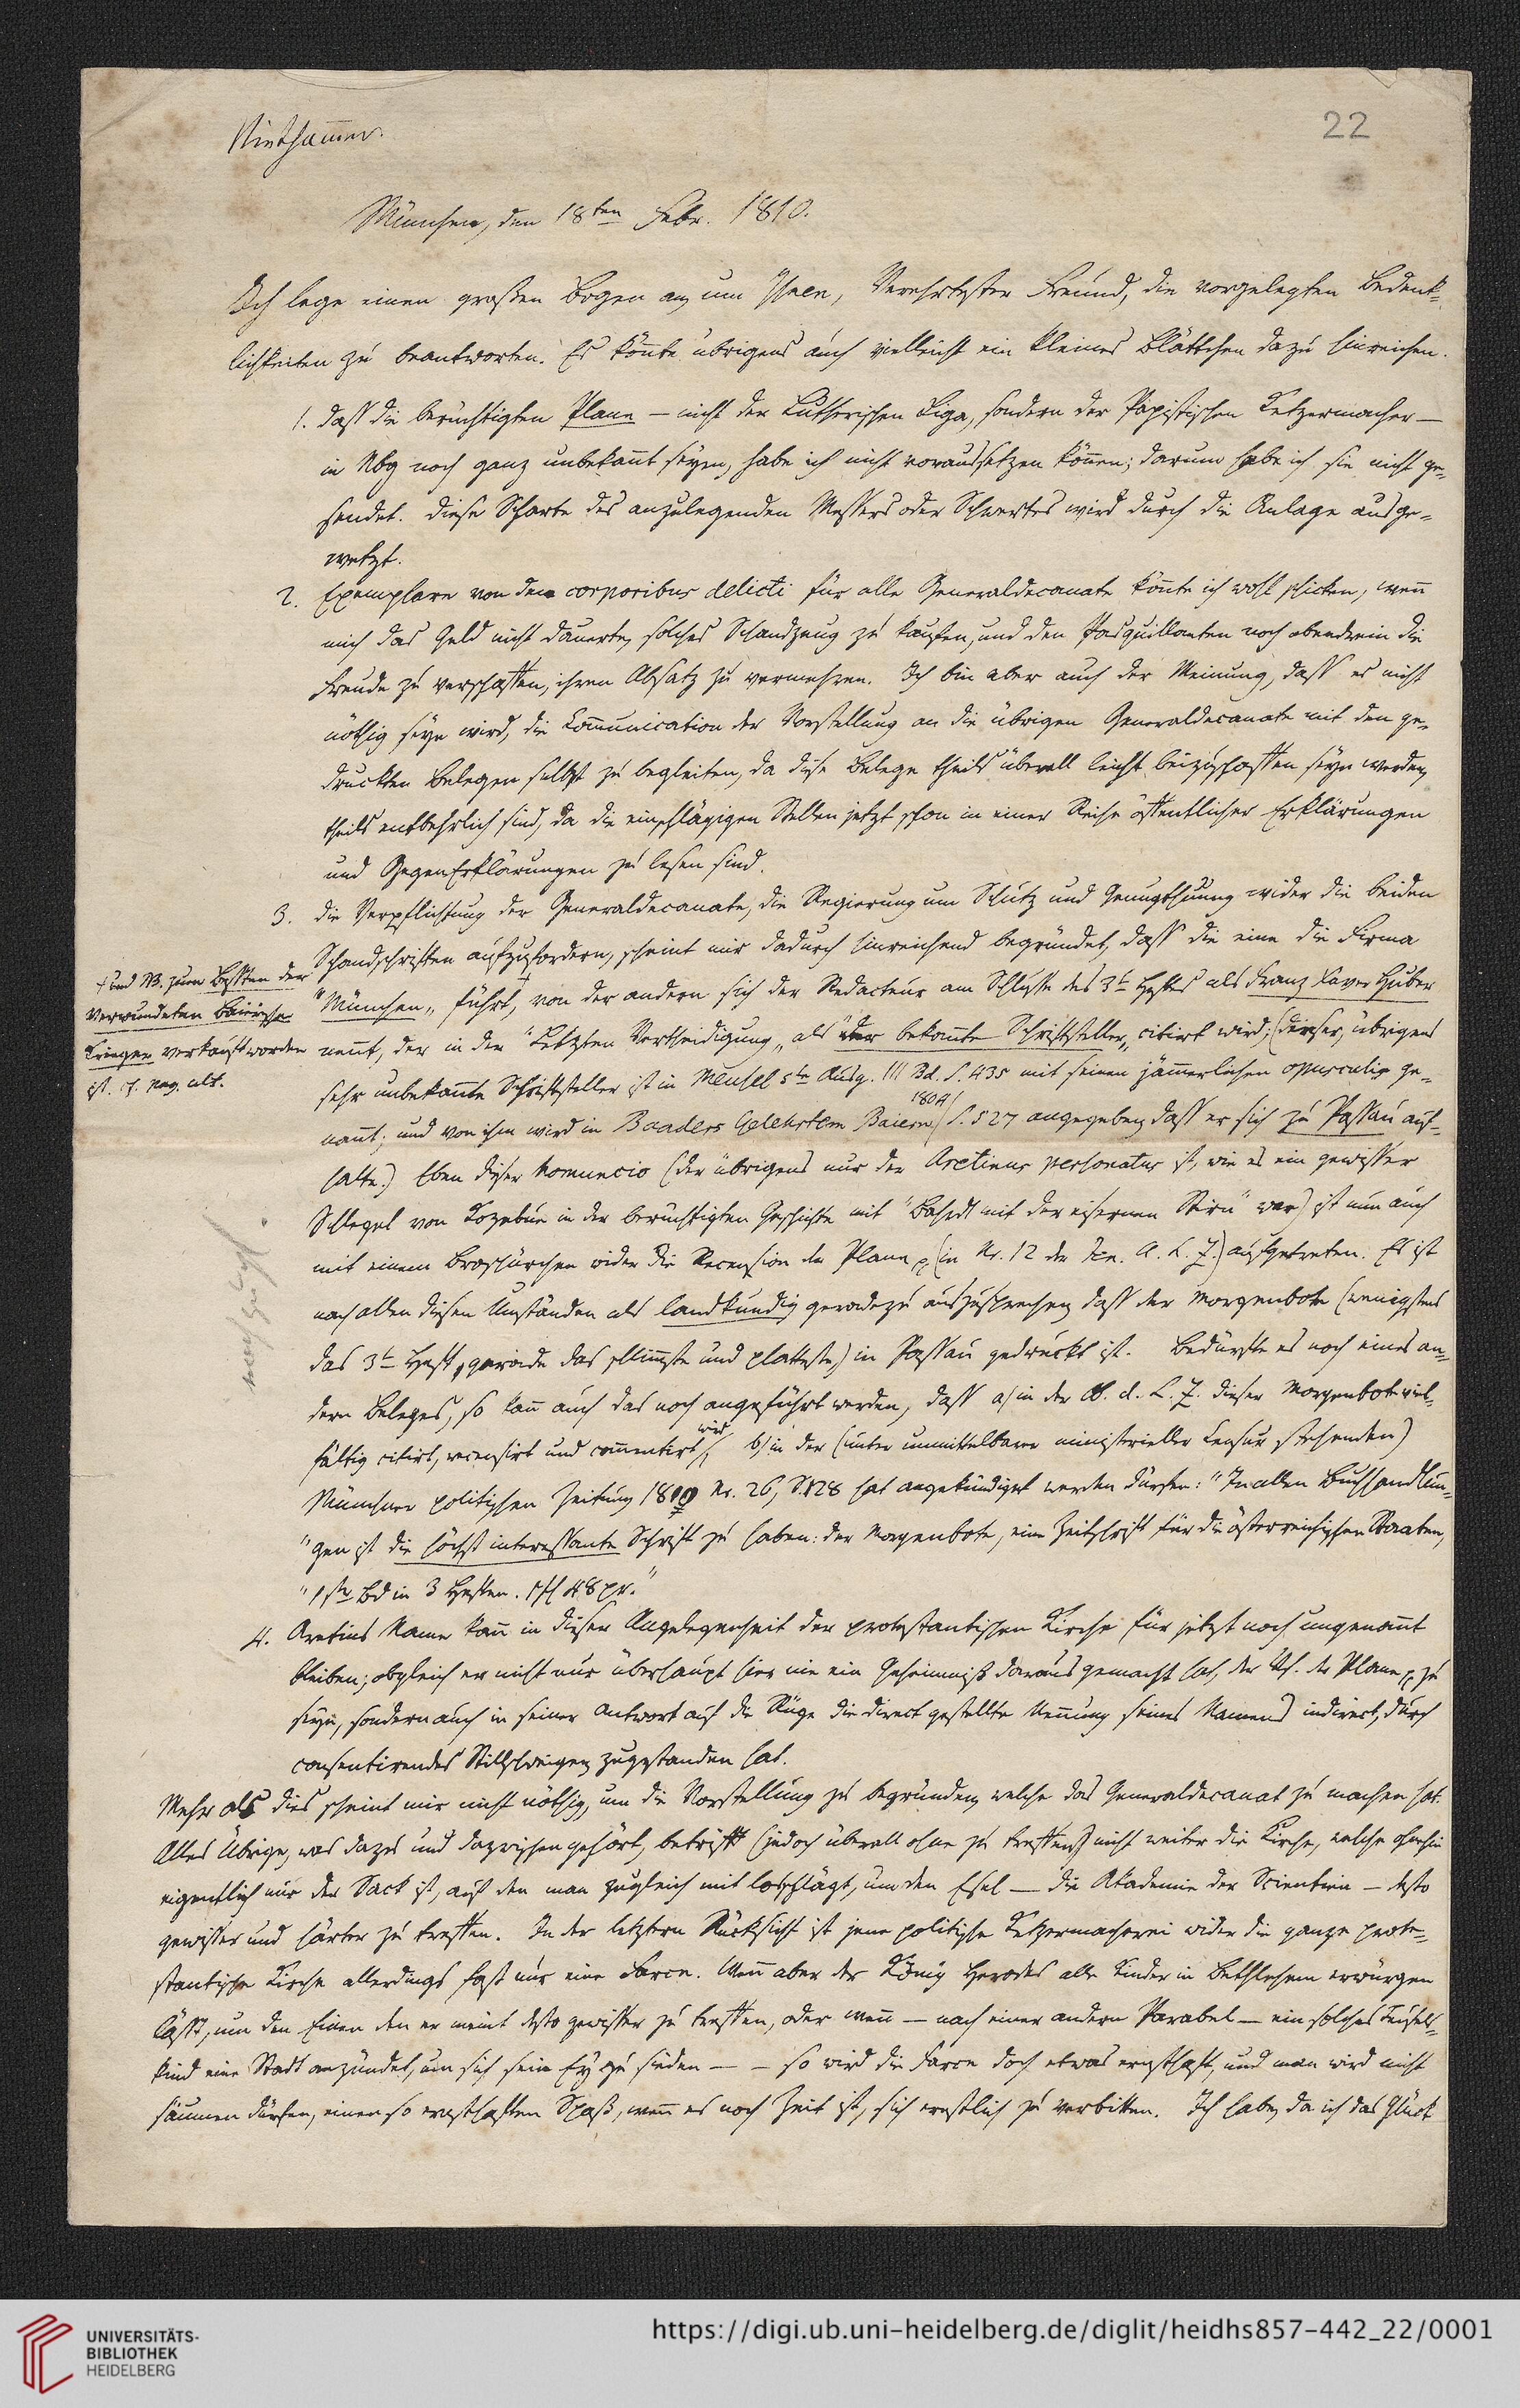 Nietham̄er.
22
München, den 18ten Febr. 1810.
Ich lege einen großen Bogen an, um Ihnen, Verehrtester Freund, die vorgelegten Bedenk-
lichkeiten zu beantworten. Es kön̄te übrigens auch vielleicht ein kleines Blättchen dazu hinreichen.
1. Daß die berüchtigten Plane — nicht der Lutherischen Liga, sondern der Papistischen Ketzermacher —
in Nbg noch ganz unbekan̄t seyen, habe ich nicht voraussetzen kön̄en; darum habe ich sie nicht ge-
sendet. Diese Scharte des anzulegenden Messers oder Schwertes wird durch die Anlage ausge-
wetzt.
2. Exemplare von den corporibus delicti für alle Generaldecanate kön̄te ich wohl schicken, wen̄
mich das Geld nicht dauerte, solches Schandzeug zu kaufen, und den Pasquillanten noch obendrein die
Freude zu verschaffen, ihren Absatz zu vermehren. Ich bin aber auch der Meinung, daß es nicht
nöthig seyn wird, die Com̄unication der Vorstellung an die übrigen Generaldecanate mit den ge-
druckten Belegen selbst zu begleiten, da diese Belege theils überall leicht beizuschaffen seyn werden,
theils entbehrlich sind, da die einschlägigen Stellen jetzt schon in einer Reihe öffentlicher Erklärungen
und GegenErklärungen zu lesen sind.
3. Die Verpflichtung der Generaldecanate, die Regierung um Schutz und Genugthuung wider die beiden
Schandschriften aufzufordern, scheint mir dadurch hinreichend begründet, daß die eine die Firma
"München" führt,+ von der andern sich der Redacteur am Schlusse des 3t Heftes als Franz Xaver Huber
+und NB. zum Besten der
verwundeten Baierischen
Krieger verkauft worden
ist. cf. pag. ult.
nen̄t, der in der "Letzten Vertheidigung" als "der bekan̄te Schriftsteller" citirt wird; (dieser, übrigens
sehr unbekan̄te Schriftsteller ist in Meusel 5te Ausg. III Bd. S. 435 mit seinen jäm̄erlichen opusculis ge-
nan̄t; und von ihm wird in Baaders Gelehrtem Baiern 1804 S. 527 angegeben, daß er sich zu Passau auf-
halte.) Eben dieser homuncio (der übrigens nur der Aretinus personatus ist, wie es ein gewisser
Schlegel von Kozebue in der berüchtigten Geschichte mit "Bahrdt mit der eisernen Stirn" war) ist nun auch
mit einem Broschürchen wider die Recension der Plane p (in Nr. 12 der Jen. A. L. Z.) aufgetreten. Es ist
nach allen diesen Umständen als landkundig geradezu auszusprechen, daß der Morgenbote (wenigstens
das 3t Heft, gerade das schlim̄ste und platteste,) in Passau gedruckt ist. Bedürfte es noch eines an-
dern Beleges, so kan̄ auch das noch angeführt werden, daß a) in der O. d. L. Z. dieser Morgenbote viel-
fältig citirt, recensirt und com̄entirt wird, b) in der (unter unmittelbarer ministerieller Censur stehenden)
Münchner politischen Zeitung 1810 Nr. 26, S. 128 hat angekündigt werden dürfen: "In allen Buchhandlun-
"gen ist die höchst interessante Schrift zu haben: der Morgenbote, eine Zeitschrift für die österreichischen Staaten,
"1ster Bd in 3 Heften. 1 fl 48 xr."
4. Aretins Name kan̄ in dieser Angelegenheit der protestantischen Kirche für jetzt noch ungenan̄t
bleiben; obgleich er nicht nur überhaupt hier nie ein Geheimniß daraus gemacht hat, der Vf. der Plane p zu
seyn, sondern auch in seiner Antwort auf die Rüge die direct gestellte Nen̄ung seines Namens) indirect, durch
consentirendes Stillschweigen, zugestanden hat.
Mehr als dies scheint mir nicht nöthig, um die Vorstellung zu begründen, welche das Generaldecanat zu machen hat.
Alles Übrige, was dazu und dazwischen gehört, betrifft (jedoch überall ohne zu treffen) nicht weiter die Kirche, welche ohnehin
eigentlich nur der Sack ist, auf den man zugleich mit losschlägt, um den Esel — die Akademie der Scientien — desto
gewisser und härter zu treffen. In der letztern Rücksicht ist jene politische Ketzermacherei wider die ganze prote-
stantische Kirche allerdings fast nur eine Farce. Wen̄ aber der König Herodes alle Kinder in Bethlehem erwürgen
läßt, um den Einen den er meint desto gewisser zu treffen, oder wen̄ — nach einer andern Parabel — ein solches Teufels-
kind eine Stadt anzündet, um sich sein Ey zu sieden — — so wird die Farce doch etwas ernsthaft, und man wird nicht
säumen dürfen, einen so ernsthaften Spaß, wen̄ es noch Zeit ist, sich ernstlich zu verbitten. Ich habe, da ich das Glück
UNIVERSITÄTS-
BIBLIOTHEK
HEIDELBERG
https://digi.ub.uni-heidelberg.de/diglit/heidhs857-442_22/0001